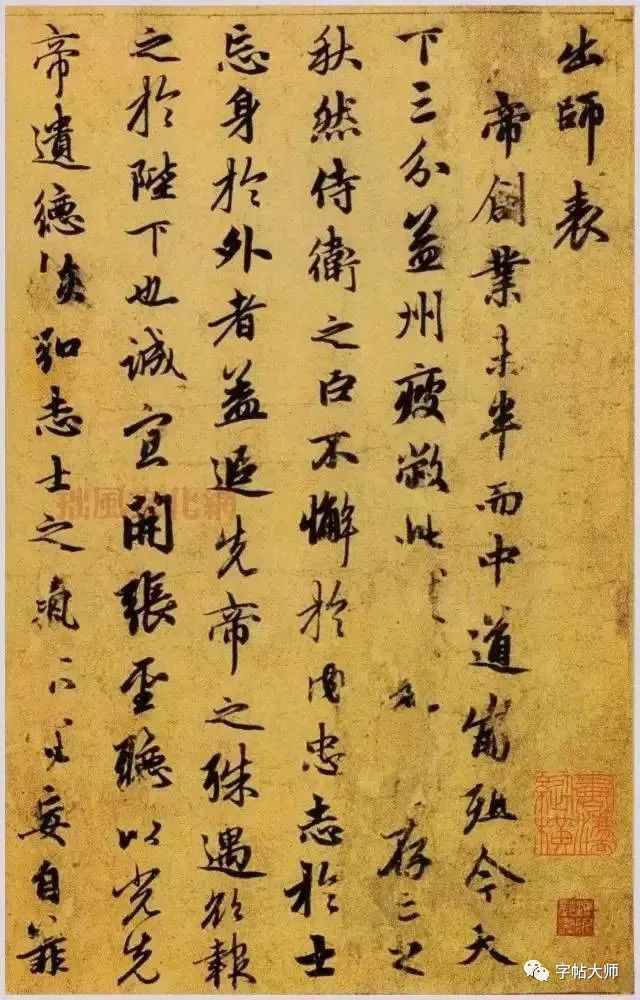 出師表
帝創業未半而中道崩殂今天
下三分益州疲敝此存亡之
秋然侍衛之臣不懈於內忠志於士
忘身於外者蓋追先帝之殊遇欲報
之於陛下也誠宜開張聖聽以光先
帝遺德恢弘志士之氣不宜妄自菲
拙風文化網
字帖大师